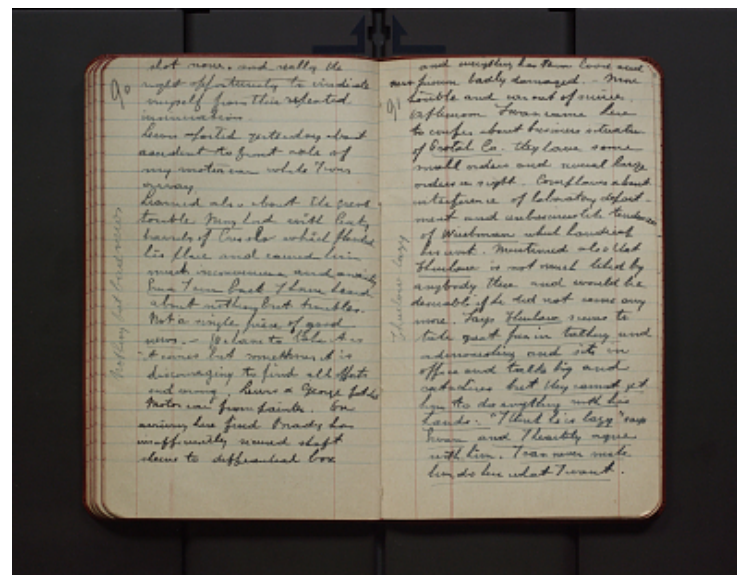 90
shot none. and really the
right opportunity to vindicate
myself from this repeated
insinuation.
yesterday about
accident to front axle of
my motor car while I was
away.
Learned also about the great
trouble May had with leaky
barrels of which flooded
his place and caused him
much inconvenience and anxiety
I am back I have heard
about nothing but troubles.
Not a single piece of good
news. - to take it as
it comes but sometimes it is
discouraging to find all that
end wrong. & George got the
Motor car from painter. On
arriving here find Brady has
insufficiently secured shaft
sleeve to differential box
Nothing but bad news
91
and everything has been loose and
badly damaged. - More
trouble and car out of service.
Afternoon came here
to confer about business situation
of Co. they have some
small orders and several large
orders in sight. Complains about
interference of laboratory depart-
ment and tendencies
of which handicap
his work. Mentioned also that
Thurlow is not much liked by
anybody there and would be
desirable if he did not come any
more. Says Thurlow seems to
take great fun in talking and
admonishing and sits in
office and talks big and
but they cannot get
him to do anything with his
hands. "I think he is lazy" says
and I heartily agree
with him. I can never make
him do here what I want.
Thurlow lazy